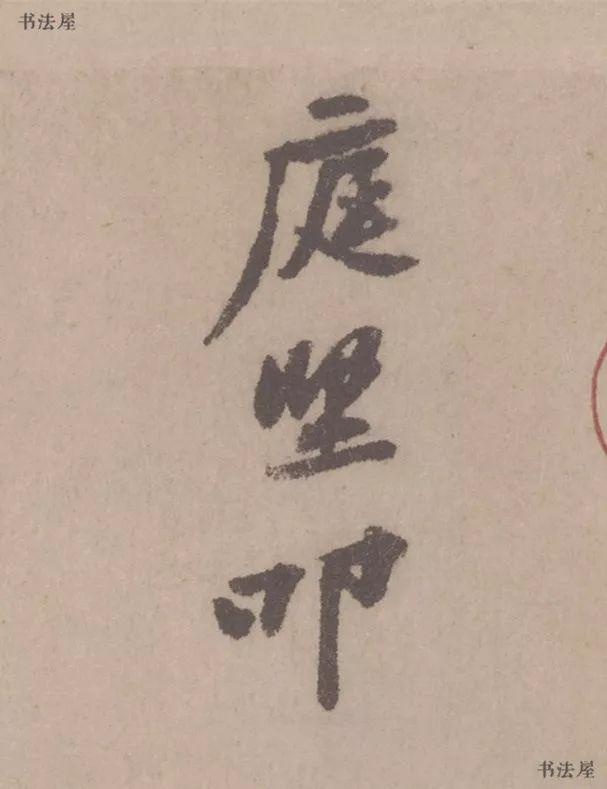 书法屋
庭堅叩
书法屋